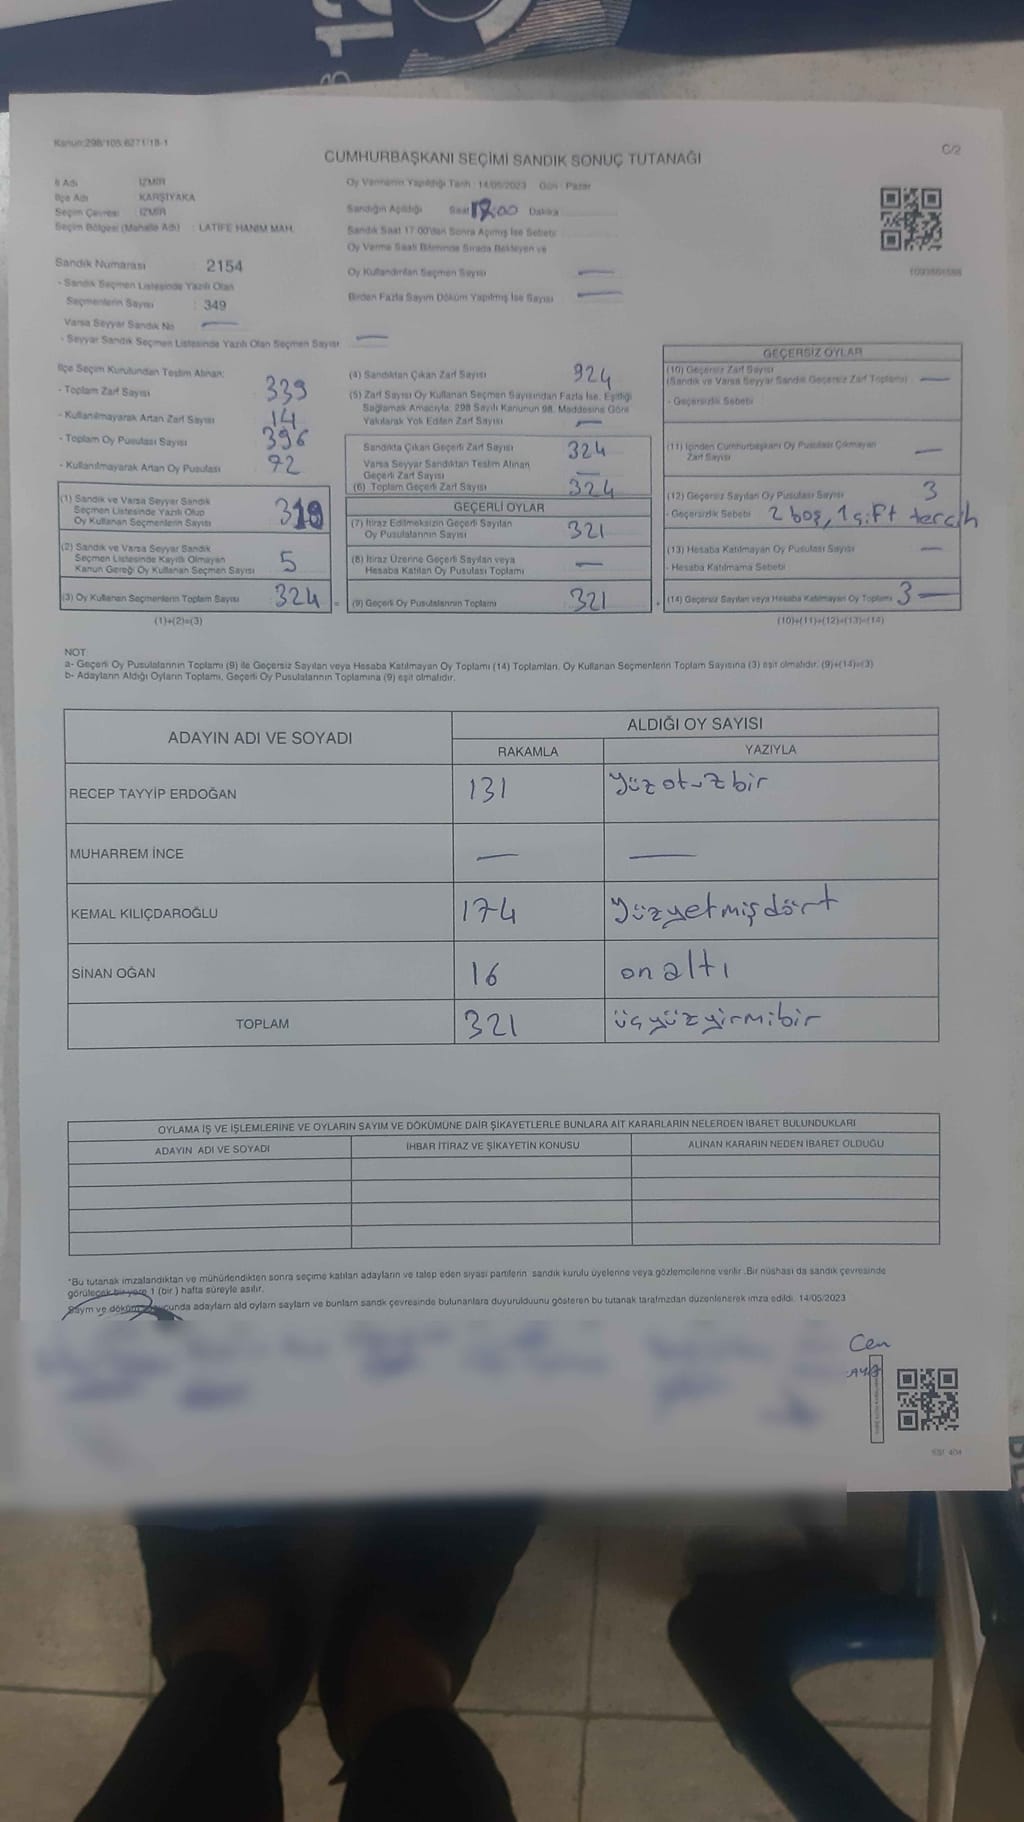 12
Kanun:298/105,6271/18-1
C/2
CUMHURBAŞKANI SEÇİMİ SANDIK SONUÇ TUTANAĞI
İl Adı : İZMİR
İlçe Adı : KARŞIYAKA
Seçim Çevresi : İZMİR
Seçim Bölgesi (Mahalle Adı) : LATİFE HANIM MAH.
Oy Vermenin Yapıldığı Tarih : 14/05/2023 Gün : Pazar
Sandığın Açıldığı Saat 18:00 Dakika
Sandık Saat 17:00'dan Sonra Açılmış İse Sebebi
Oy Verme Saati Bitiminde Sırada Bekleyen ve
Oy Kullandırılan Seçmen Sayısı —
Birden Fazla Sayım Döküm Yapılmış İse Sayısı —
Sandık Numarası : 2154
- Sandık Seçmen Listesinde Yazılı Olan
Seçmenlerin Sayısı : 349
Varsa Seyyar Sandık No —
- Seyyar Sandık Seçmen Listesinde Yazılı Olan Seçmen Sayısı —
İlçe Seçim Kurulundan Teslim Alınan:
- Toplam Zarf Sayısı 339
- Kullanılmayarak Artan Zarf Sayısı 14
- Toplam Oy Pusulası Sayısı 396
- Kullanılmayarak Artan Oy Pusulası 72
(1) Sandık ve Varsa Seyyar Sandık
Seçmen Listesinde Yazılı Olup
Oy Kullanan Seçmenlerin Sayısı 319
(2) Sandık ve Varsa Seyyar Sandık
Seçmen Listesinde Kayıtlı Olmayan
Kanun Gereği Oy Kullanan Seçmen Sayısı 5
(3) Oy Kullanan Seçmenlerin Toplam Sayısı 324
(1)+(2)=(3)
(4) Sandıktan Çıkan Zarf Sayısı 324
(5) Zarf Sayısı Oy Kullanan Seçmen Sayısından Fazla İse, Eşitliği
Sağlamak Amacıyla, 298 Sayılı Kanunun 98. Maddesine Göre
Yakılarak Yok Edilen Zarf Sayısı —
Sandıkta Çıkan Geçerli Zarf Sayısı 324
Varsa Seyyar Sandıktan Teslim Alınan
Geçerli Zarf Sayısı —
(6) Toplam Geçerli Zarf Sayısı 324
GEÇERLİ OYLAR
(7) İtiraz Edilmeksizin Geçerli Sayılan
Oy Pusulalarının Sayısı 321
(8) İtiraz Üzerine Geçerli Sayılan veya
Hesaba Katılan Oy Pusulası Toplamı —
= (9) Geçerli Oy Pusulalarının Toplamı 321
GEÇERSİZ OYLAR
(10) Geçersiz Zarf Sayısı
(Sandık ve Varsa Seyyar Sandık Geçersiz Zarf Toplamı) —
- Geçersizlik Sebebi
(11) İçinden Cumhurbaşkanı Oy Pusulası Çıkmayan
Zarf Sayısı —
(12) Geçersiz Sayılan Oy Pusulası Sayısı 3
- Geçersizlik Sebebi 2 boş, 1 çift tercih
(13) Hesaba Katılmayan Oy Pusulası Sayısı —
- Hesaba Katılmama Sebebi
+ (14) Geçersiz Sayılan veya Hesaba Katılmayan Oy Toplamı 3 —
(10)+(11)+(12)+(13)=(14)
NOT:
a- Geçerli Oy Pusulalarının Toplamı (9) ile Geçersiz Sayılan veya Hesaba Katılmayan Oy Toplamı (14) Toplamları, Oy Kullanan Seçmenlerin Toplam Sayısına (3) eşit olmalıdır. (9)+(14)=(3)
b- Adayların Aldığı Oyların Toplamı, Geçerli Oy Pusulalarının Toplamına (9) eşit olmalıdır.
ADAYIN ADI VE SOYADI
ALDIĞI OY SAYISI
RAKAMLA YAZIYLA
RECEP TAYYİP ERDOĞAN 131 yüzotuzbir
MUHARREM İNCE — —
KEMAL KILIÇDAROĞLU 174 yüzyetmişdört
SİNAN OĞAN 16 onaltı
TOPLAM 321 üçyüzyirmibir
OYLAMA İŞ VE İŞLEMLERİNE VE OYLARIN SAYIM VE DÖKÜMÜNE DAİR ŞİKAYETLERLE BUNLARA AİT KARARLARIN NELERDEN İBARET BULUNDUKLARI
ADAYIN ADI VE SOYADI İHBAR İTİRAZ VE ŞİKAYETİN KONUSU ALINAN KARARIN NEDEN İBARET OLDUĞU
*Bu tutanak imzalandıktan ve mühürlendikten sonra seçime katılan adayların ve talep eden siyasi partilerin sandık kurulu üyelerine veya gözlemcilerine verilir .Bir nüshası da sandık çevresinde
görülecek bir yere 1 (bir ) hafta süreyle asılır.
Sayım ve döküm sonucunda adayların ald oyların sayıları ve bunların sandk çevresinde bulunanlara duyurulduunu gösteren bu tutanak tarafmzdan düzenlenerek imza edildi. 14/05/2023
Cen